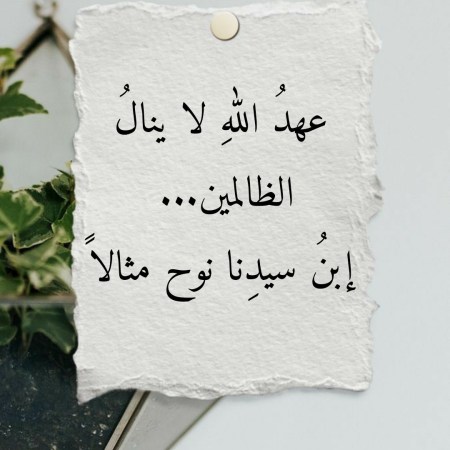 عهدُ اللهِ لا ينالُ
الظالمين...
إبنُ سيدِنا نوح مثالاً